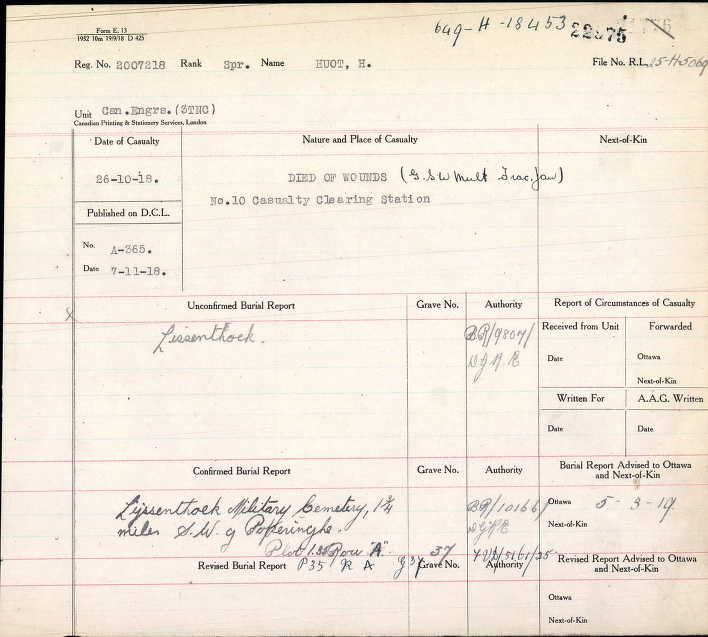 Form E. 13
1932 10m 19/9/18 D 425
649-H-18453 22975
Reg. No. 2007218 Rank Spr. Name HUOT, H. File No. R.L. 25-H-5069
Unit Can.Engrs.(3TNC)
Canadian Printing & Stationery Services, London
Date of Casualty Nature and Place of Casualty Next-of-Kin
26-10-18. DIED OF WOUNDS (G.S.W Mult Frac. Jaw)
No.10 Casualty Clearing Station
Published on D.C.L.
No. A-365.
Date 7-11-18.
Unconfirmed Burial Report Grave No. Authority Report of Circumstances of Casualty
X
Lissenthock. BR/9807/
Received from Unit Forwarded
Date Ottawa
Next-of-Kin
Written For A.A.G. Written
Date Date
Confirmed Burial Report Grave No. Authority Burial Report Advised to Ottawa
and Next-of-Kin
Lijssenthock Military Cemetery, 1 3/4 BR/10166/ Ottawa 5-3-19.
miles S.W. of Poperinghe. Next-of-Kin
Plot Row "A" 37
Revised Burial Report P35 R A G37 Grave No. Authority Revised Report Advised to Ottawa
and Next-of-Kin
Ottawa
Next-of-Kin